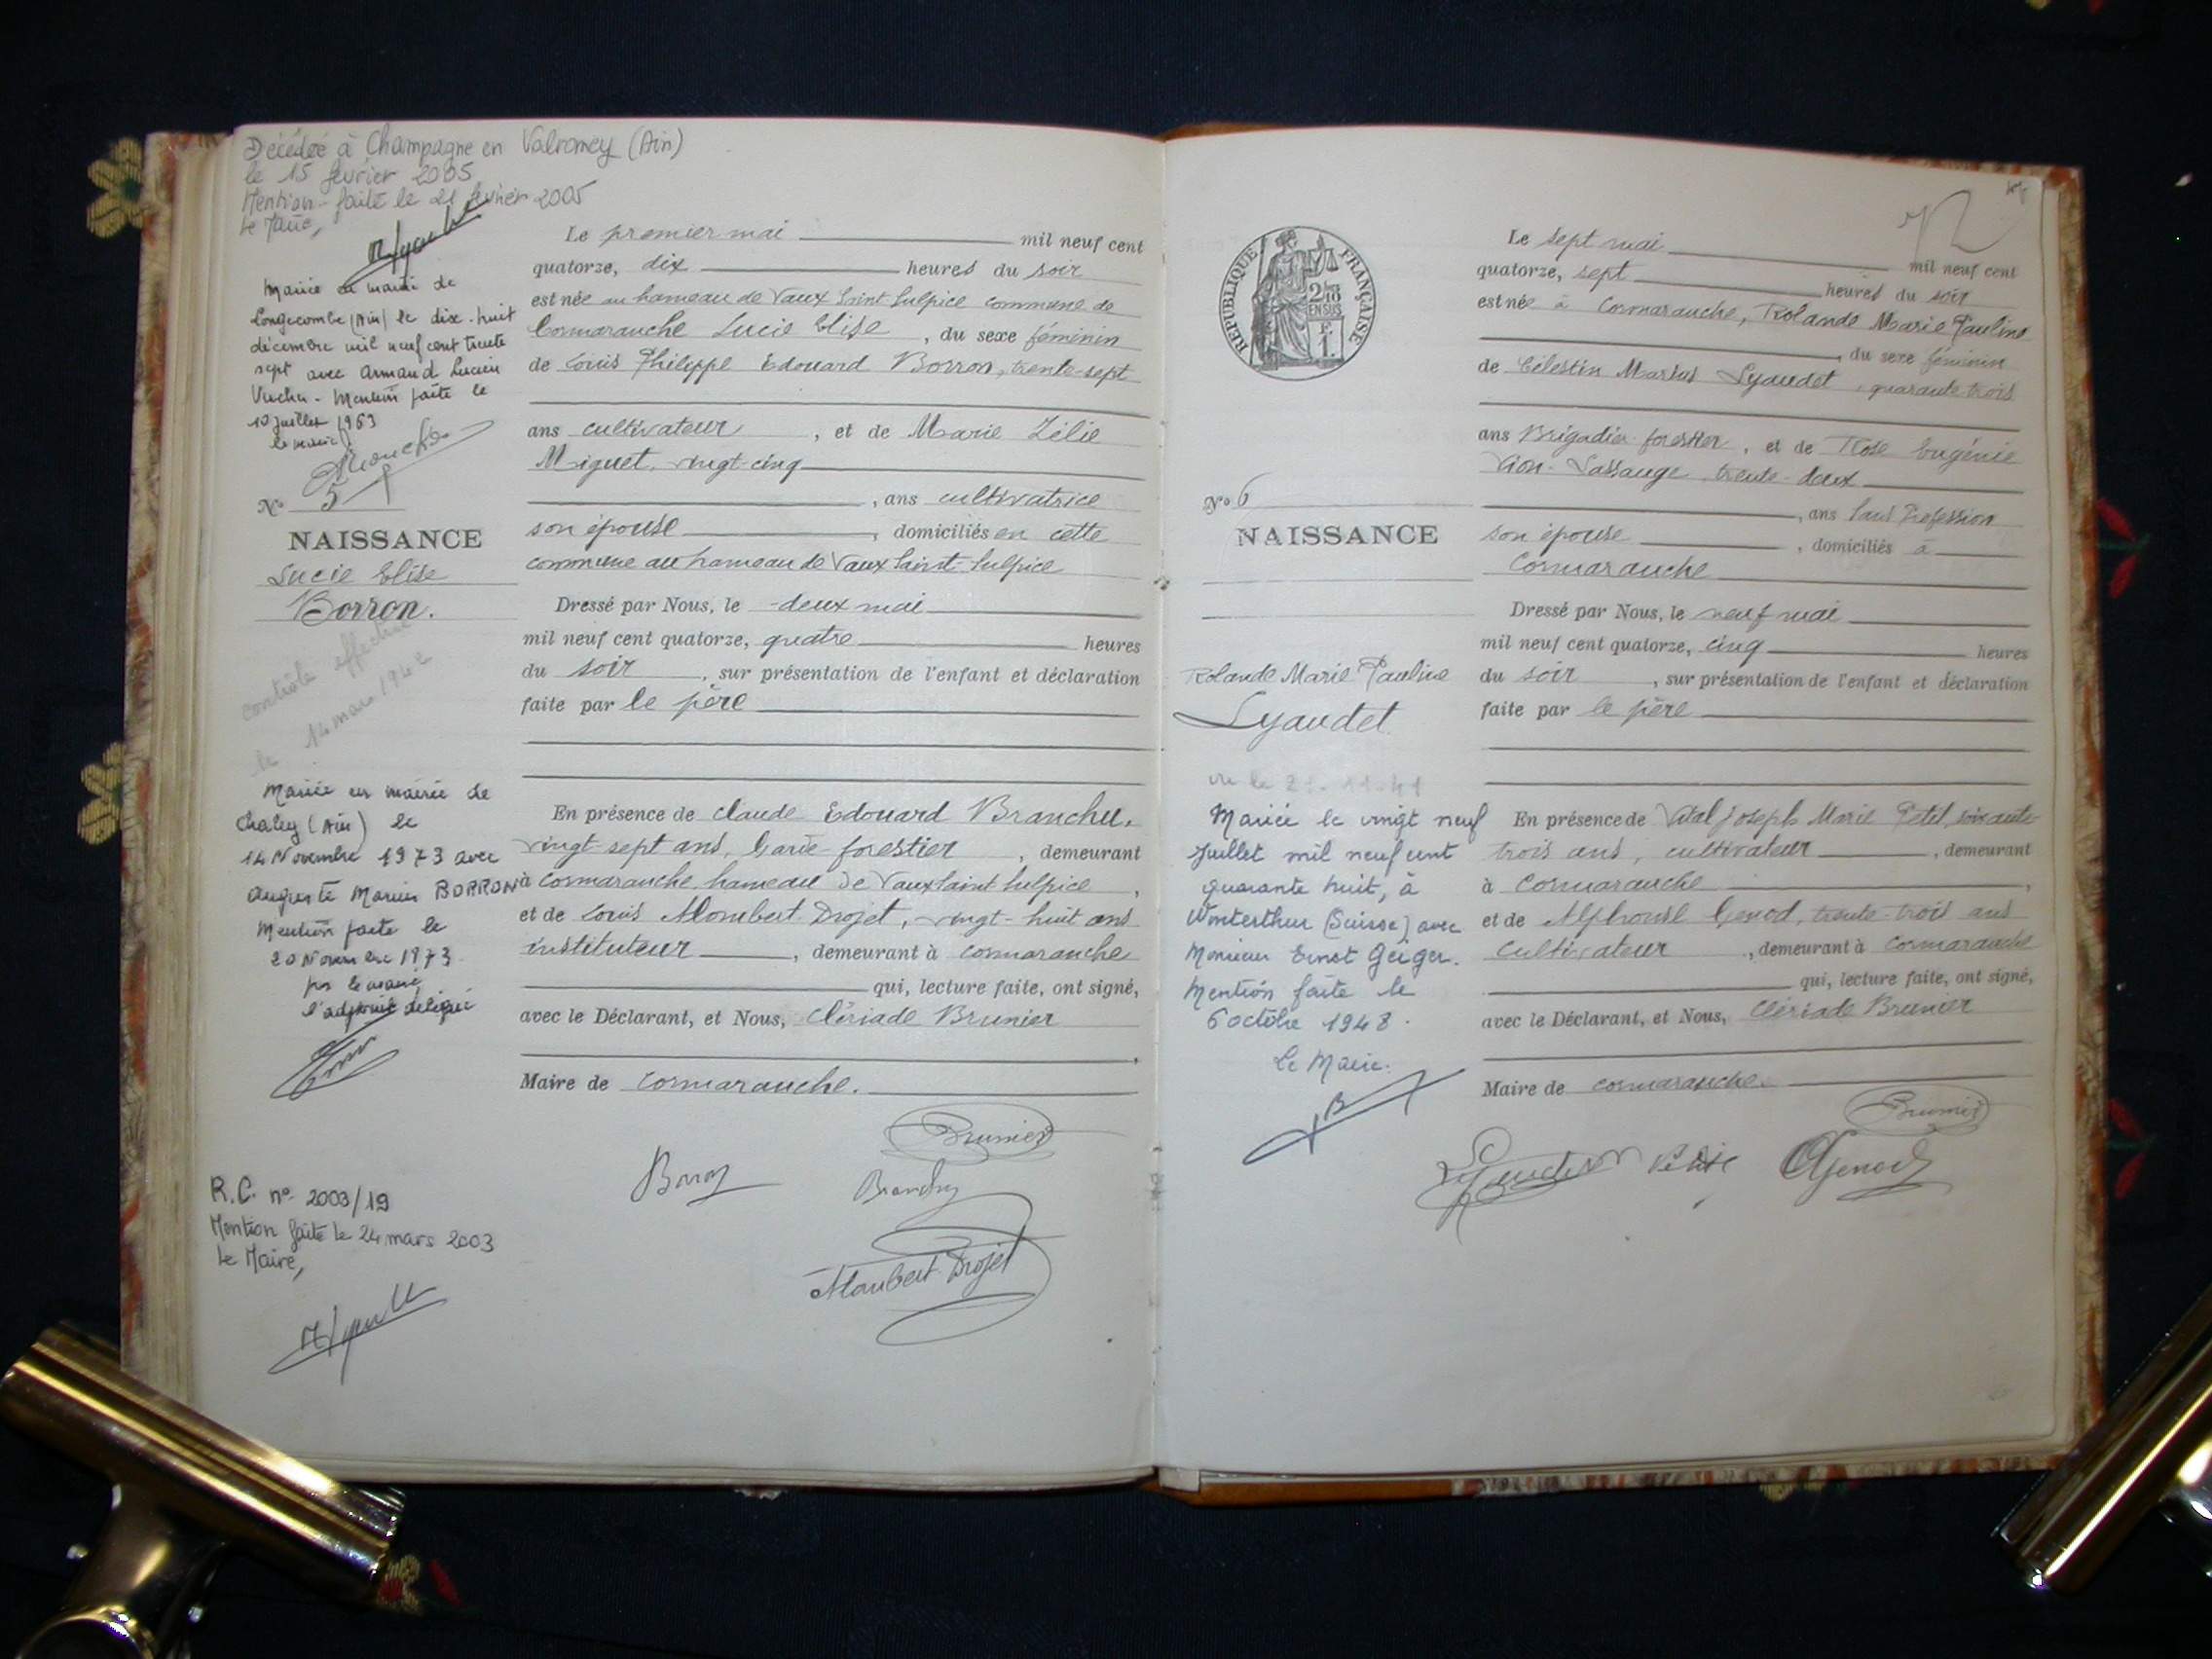 Décédée à Champagne en Valromey (Ain)
le 15 février 2005
Mention faite le 21 février 2005
Le Maire,
Mariée en mairie de
Longecombe (Ain) le dix-huit
décembre mil neuf cent trente
sept avec Armand Lucien
Mention faite le
10 juillet 1963
le maire
No 5
NAISSANCE
Lucie Elise
Borron.
contrôle effectué
le 14 mars 1942
Mariée en mairie de
Chaley (Ain) le
14 Novembre 1973 avec
Auguste Marius BORRON
Mention faite le
20 Novembre 1973
pr le maire,
l'adjoint délégué
R.C. no 2003/19
Mention faite le 24 mars 2003
Le Maire,
Le premier mai mil neuf cent
quatorze, dix heures du soir
est née au hameau de Vaux Saint-Sulpice commune de
Cormaranche Lucie Elise, du sexe féminin
de Louis Philippe Edouard Borron, trente-sept
ans cultivateur, et de Marie Zélie
Miguet, vingt-cinq
, ans cultivatrice
son épouse, domiciliés en cette
commune au hameau de Vaux Saint-Sulpice
Dressé par Nous, le deux mai
mil neuf cent quatorze, quatre heures
du soir, sur présentation de l'enfant et déclaration
faite par le père
En présence de Claude Edouard Branchu,
vingt-sept ans, Garde-forestier, demeurant
à Cormaranche hameau de Vaux Saint Sulpice,
et de Louis Mombert-Drojet, vingt-huit ans
instituteur, demeurant à Cormaranche
qui, lecture faite, ont signé,
avec le Déclarant, et Nous, Clériade Brunier
Maire de Cormaranche.
Brunier
Borron
Branchu
Maubert-Drojet
RÉPUBLIQUE FRANÇAISE
2/10
EN SUS
1 F.
No 6
NAISSANCE
Rolande Marie Pauline
Lyaudet
vu le 21-11-41
Mariée le vingt neuf
Juillet mil neuf cent
quarante huit, à
Winterthur (Suisse) avec
Monsieur Ernst Geiger.
Mention faite le
6 octobre 1948.
Le Maire.
Le sept mai mil neuf cent
quatorze, sept heures du soir
est née à Cormaranche, Rolande Marie Pauline
, du sexe féminin
de Célestin Marius Lyaudet, quarante-trois
ans Brigadier forestier, et de Rose Eugénie
Vion-Lassauge, trente-deux
, ans Sans Profession
son épouse, domiciliés à
Cormaranche
Dressé par Nous, le neuf mai
mil neuf cent quatorze, cinq heures
du soir, sur présentation de l'enfant et déclaration
faite par le père
En présence de Vital Joseph Marie Petit, soixante-
trois ans, cultivateur, demeurant
à Cormaranche,
et de Alphonse Genod, trente-trois ans
cultivateur, demeurant à Cormaranche
qui, lecture faite, ont signé,
avec le Déclarant, et Nous, Clériade Brunier
Maire de Cormaranche.
Brunier
Lyaudet
AGenod